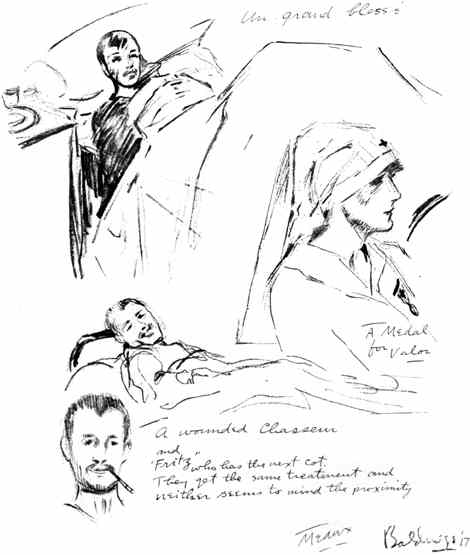 Un grand blessé
A Medal
for
Valor
A wounded Chasseur
and
"Fritz" who has the next cot.
They get the same treatment and
neither seems to mind the proximity
Meaux
Baldridge '17